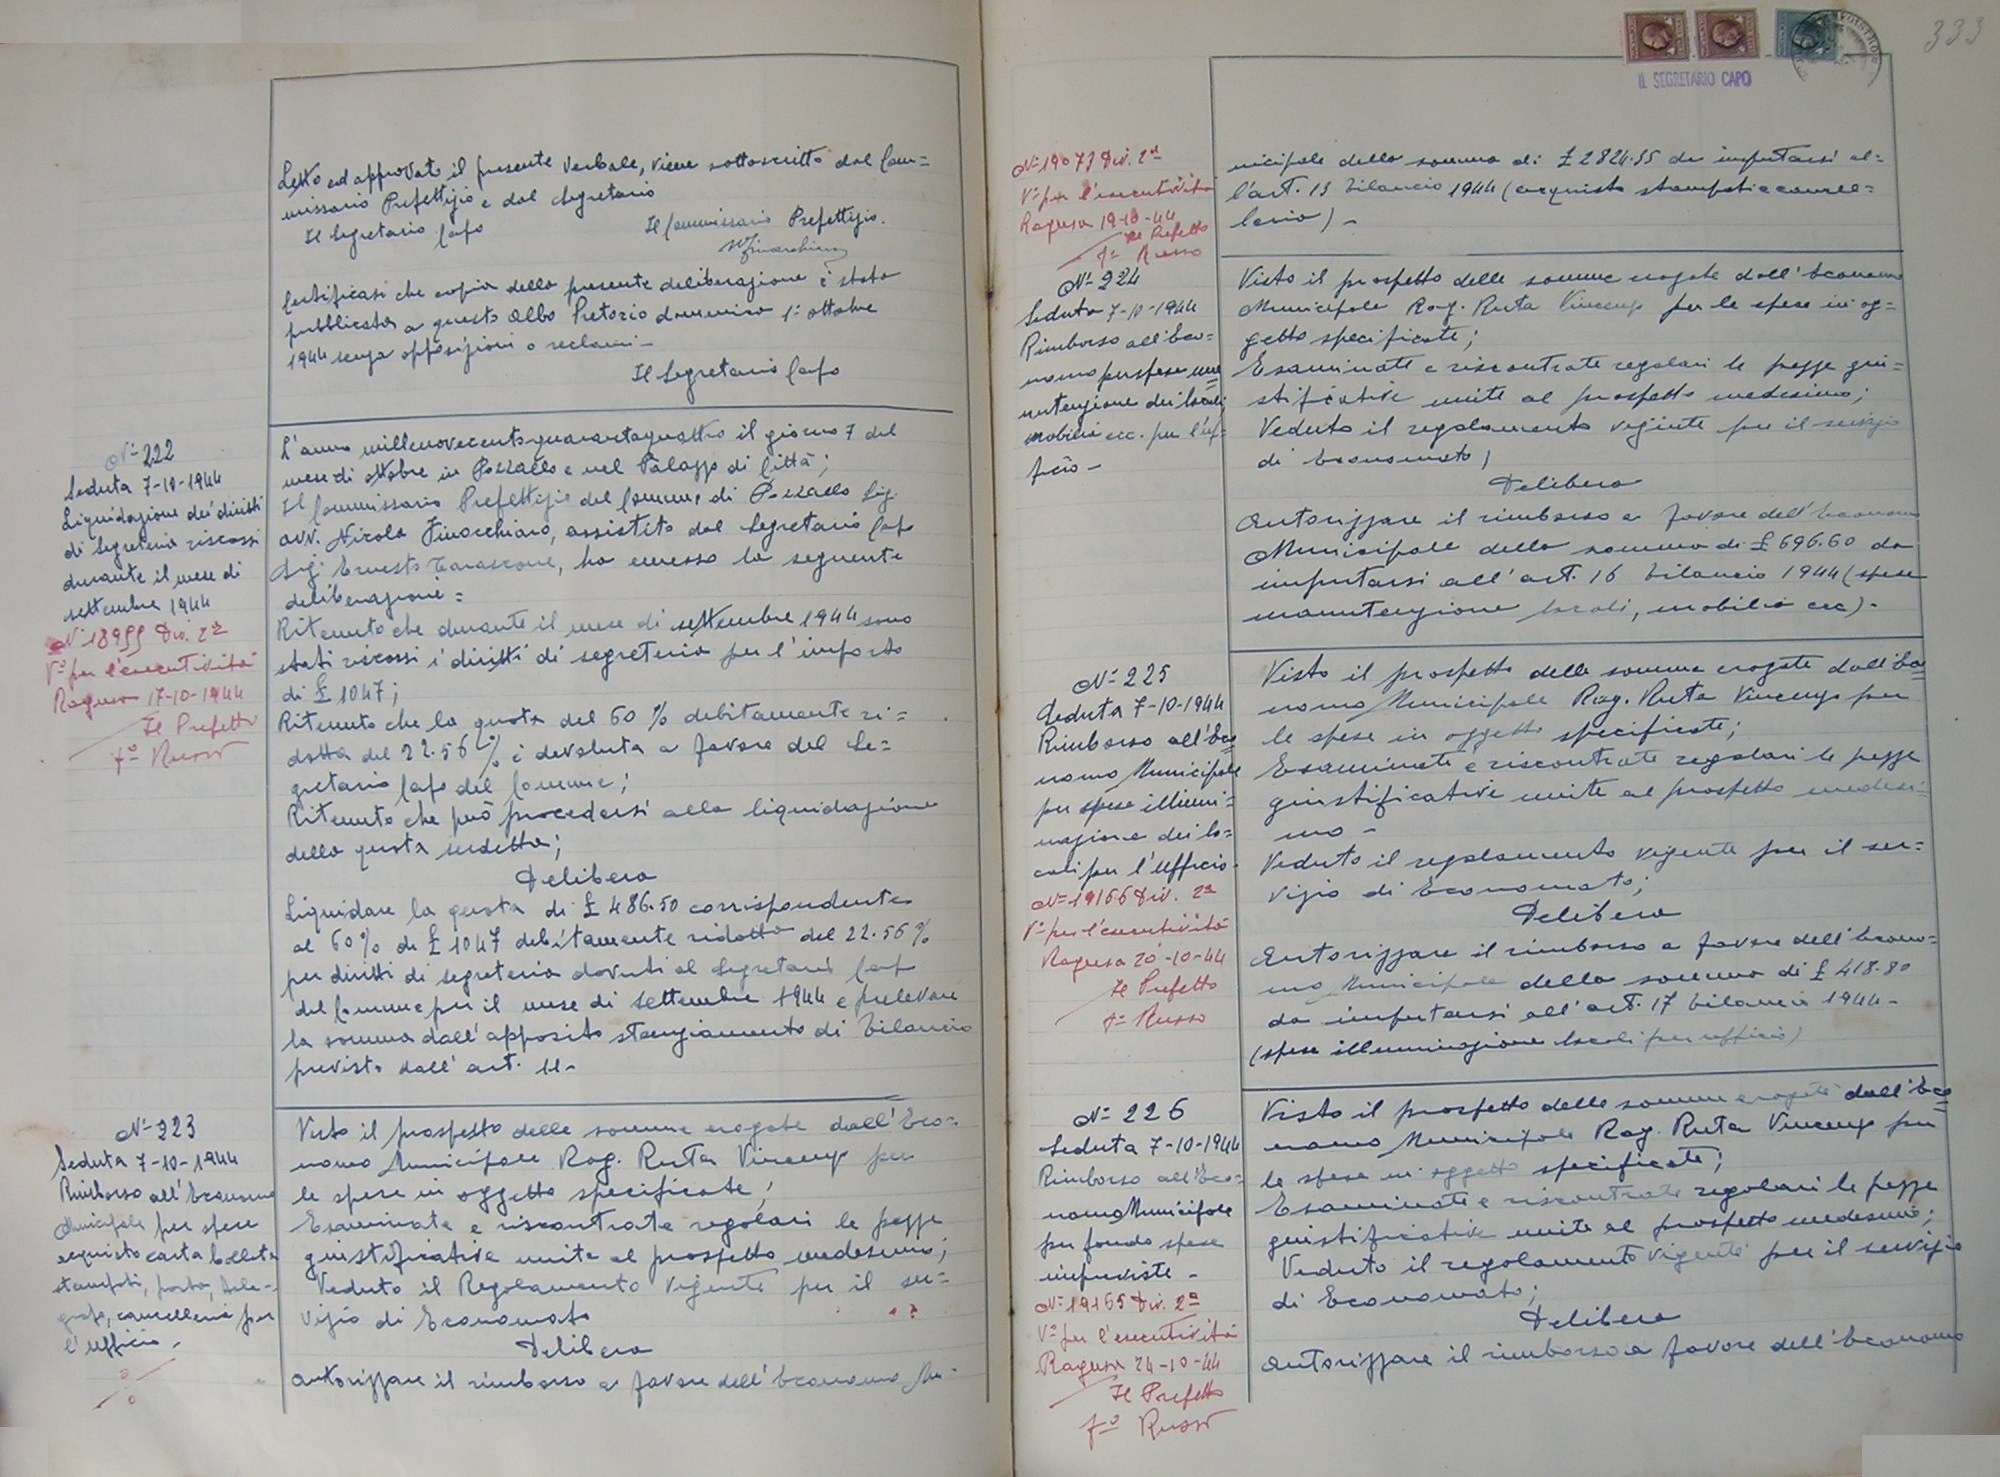 Letto ed approvato il presente verbale, viene sottoscritto dal Com=
missario Prefettizio e dal Segretario
Il Segretario Capo
Il Commissario Prefettizio.
Certificasi che copia della presente deliberazione è stata
pubblicata a questo Albo Pretorio domenica 1° ottobre
1944 senza opposizioni o reclami -
Il Segretario Capo
N° 222
Seduta 7-10-1944
Liquidazione dei diritti
di Segreteria riscossi
durante il mese di
settembre 1944
N° 18955 Div. 2ª
V° per l'esecutività
Ragusa 17-10-1944
Il Prefetto
fº Russo
L'anno millenovecentoquarantaquattro il giorno 7 del
mese di ottobre in Pozzallo e nel Palazzo di Città;
Il Commissario Prefettizio del Comune di Pozzallo Sig.
avv. Nicola Finocchiaro, assistito dal Segretario Capo
Sig. Ernesto Tarascone, ha emesso la seguente
deliberazione =
Ritenuto che durante il mese di settembre 1944 sono
stati riscossi i diritti di segreteria per l'importo
di £ 1047;
Ritenuto che la quota del 60% debitamente ri=
dotta del 22.56% è devoluta a favore del Se=
gretario Capo del Comune;
Ritenuto che può procedersi alla liquidazione
della quota sudetta;
Delibera
Liquidare la quota di £ 486.50 corrispondente
al 60% di £ 1047 debitamente ridotta del 22.56%
per diritti di segreteria dovuti al Segretario Capo
del Comune per il mese di settembre 1944 e prelevare
la somma dall'apposito stanziamento di bilancio
previsto dall'art. 11-
N° 223
Seduta 7-10-1944
Rimborso all'Economo
Municipale per spese
acquisto carta bollata
stampati, posta, tele-
grafo, cancelleria per
l'ufficio.
Visto il prospetto delle somme erogate dall'Eco=
nomo Municipale Rag. Ruta Vincenzo per
le spese in oggetto specificate;
Esaminate e riscontrate regolari le pezze
giustificative unite al prospetto medesimo;
Veduto il Regolamento vigente per il ser=
vizio di Economato
Delibera
autorizzare il rimborso a favore dell'Economo Mu=
333
IL SEGRETARIO CAPO
N° 19073 Div. 2ª
V° per l'esecutività
Ragusa 19-10-44
Il Prefetto
fº Russo
nicipale della somma di £ 2824.55 da imputarsi al=
l'art. 13 bilancio 1944 (acquisto stampati e cancel=
leria) -
N° 224
Seduta 7-10-1944
Rimborso all'Eco=
nomo per spese ma=
nutenzione dei locali,
mobilia ecc. per l'uf=
ficio -
Visto il prospetto delle somme erogate dall'Economo
Municipale Rag. Ruta Vincenzo per le spese in og=
getto specificate;
Esaminate e riscontrate regolari le pezze giu=
stificative unite al prospetto medesimo;
Veduto il regolamento vigente per il servizio
di Economato;
Delibera
Autorizzare il rimborso a favore dell'Economo
Municipale della somma di £ 696.60 da
imputarsi all'art. 16 bilancio 1944 (spese
manutenzione locali, mobilia ecc) -
N° 225
Seduta 7-10-1944
Rimborso all'Eco=
nomo Municipale
per spese illumi=
nazione dei lo=
cali per l'ufficio.
N° 19166 Div. 2ª
V° per l'esecutività
Ragusa 20-10-44
Il Prefetto
fº Russo
Visto il prospetto delle somme erogate dall'Eco=
nomo Municipale Rag. Ruta Vincenzo per
le spese in oggetto specificate;
Esaminate e riscontrate regolari le pezze
giustificative unite al prospetto medesi=
mo -
Veduto il regolamento vigente per il ser=
vizio di Economato;
Delibera
Autorizzare il rimborso a favore dell'Econo=
mo Municipale della somma di £ 418.80
da imputarsi all'art. 17 bilancio 1944 -
(spese illuminazione locali per ufficio)
N° 226
Seduta 7-10-1944
Rimborso all'Eco=
nomo Municipale
per fondo spese
impreviste -
N° 19165 Div. 2ª
V° per l'esecutività
Ragusa 24-10-44
Il Prefetto
fº Russo
Visto il prospetto delle somme erogate dall'Eco=
nomo Municipale Rag. Ruta Vincenzo per
le spese in oggetto specificate;
Esaminate e riscontrate regolari le pezze
giustificative unite al prospetto medesimo;
Veduto il regolamento vigente per il servizio
di Economato;
Delibera
Autorizzare il rimborso a favore dell'Economo